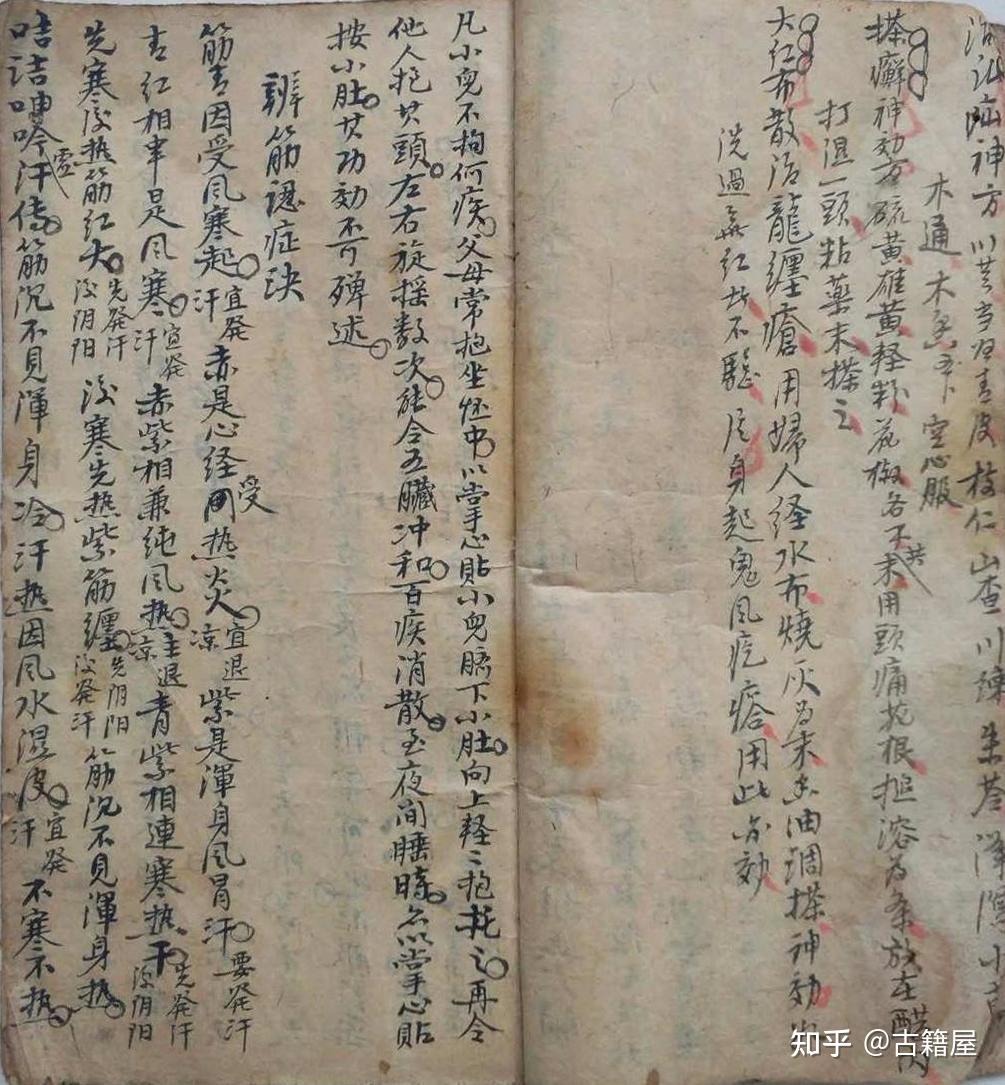 治疝疝神方 川芎 當归 青皮 枝仁 山查 川練 朱苓 澤瀉 小茴
木通 木香 五卜 空心服
搽癬神効方 硫黄 雄黄 軽粉 花椒各不共末用頭痛花根搥溶为条放在醋内
打湿一頭粘藥末搽之
大红布散治龍纏瘡 用婦人経水布燒灰为末 油調搽神効
洗過無红 不 周身起鬼风疙瘩用此亦効
凡小兒不拘何疾父母常抱坐怀中以掌心貼小兒臍下小肚向上軽々抱托之再令
他人抱其頭左右旋摇数次能令五臟冲和百疾消散至夜间睡時亦以掌心貼
按小肚其功効不可殫述
辨筋認症决
筋青因受风寒起宜發汗赤是心经受热炎宜退凉紫是渾身风冒汗要發汗
青红相串是风寒宜發汗赤紫相兼纯风热主退凉青紫相連寒热干先發汗後阴阳
先寒後热筋红大先發汗後阴阳後寒先热紫筋纏先阴阳後發汗筋沉不見渾身热
咭詰呻吟汗虚傳筋沉不見渾身冷汗热因风水湿皮宜發汗不寒不热
知乎 @古籍屋